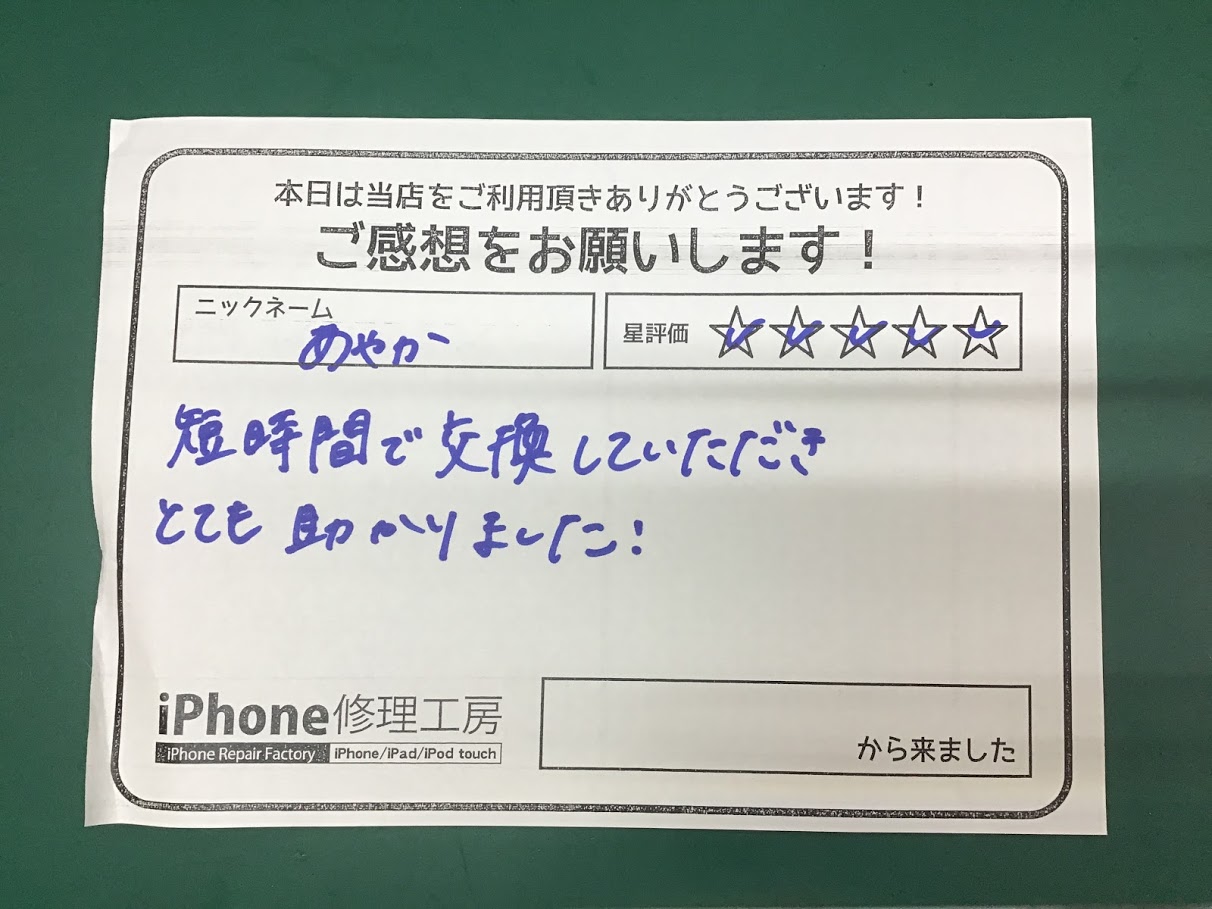 本日は当店をご利用頂きありがとうございます！
ご感想をお願いします！
ニックネーム
あやか
星評価 ☆☆☆☆☆
短時間で交換していただき
とても助かりました！
iPhone修理工房
iPhone Repair Factory iPhone/iPad/iPod touch
から来ました